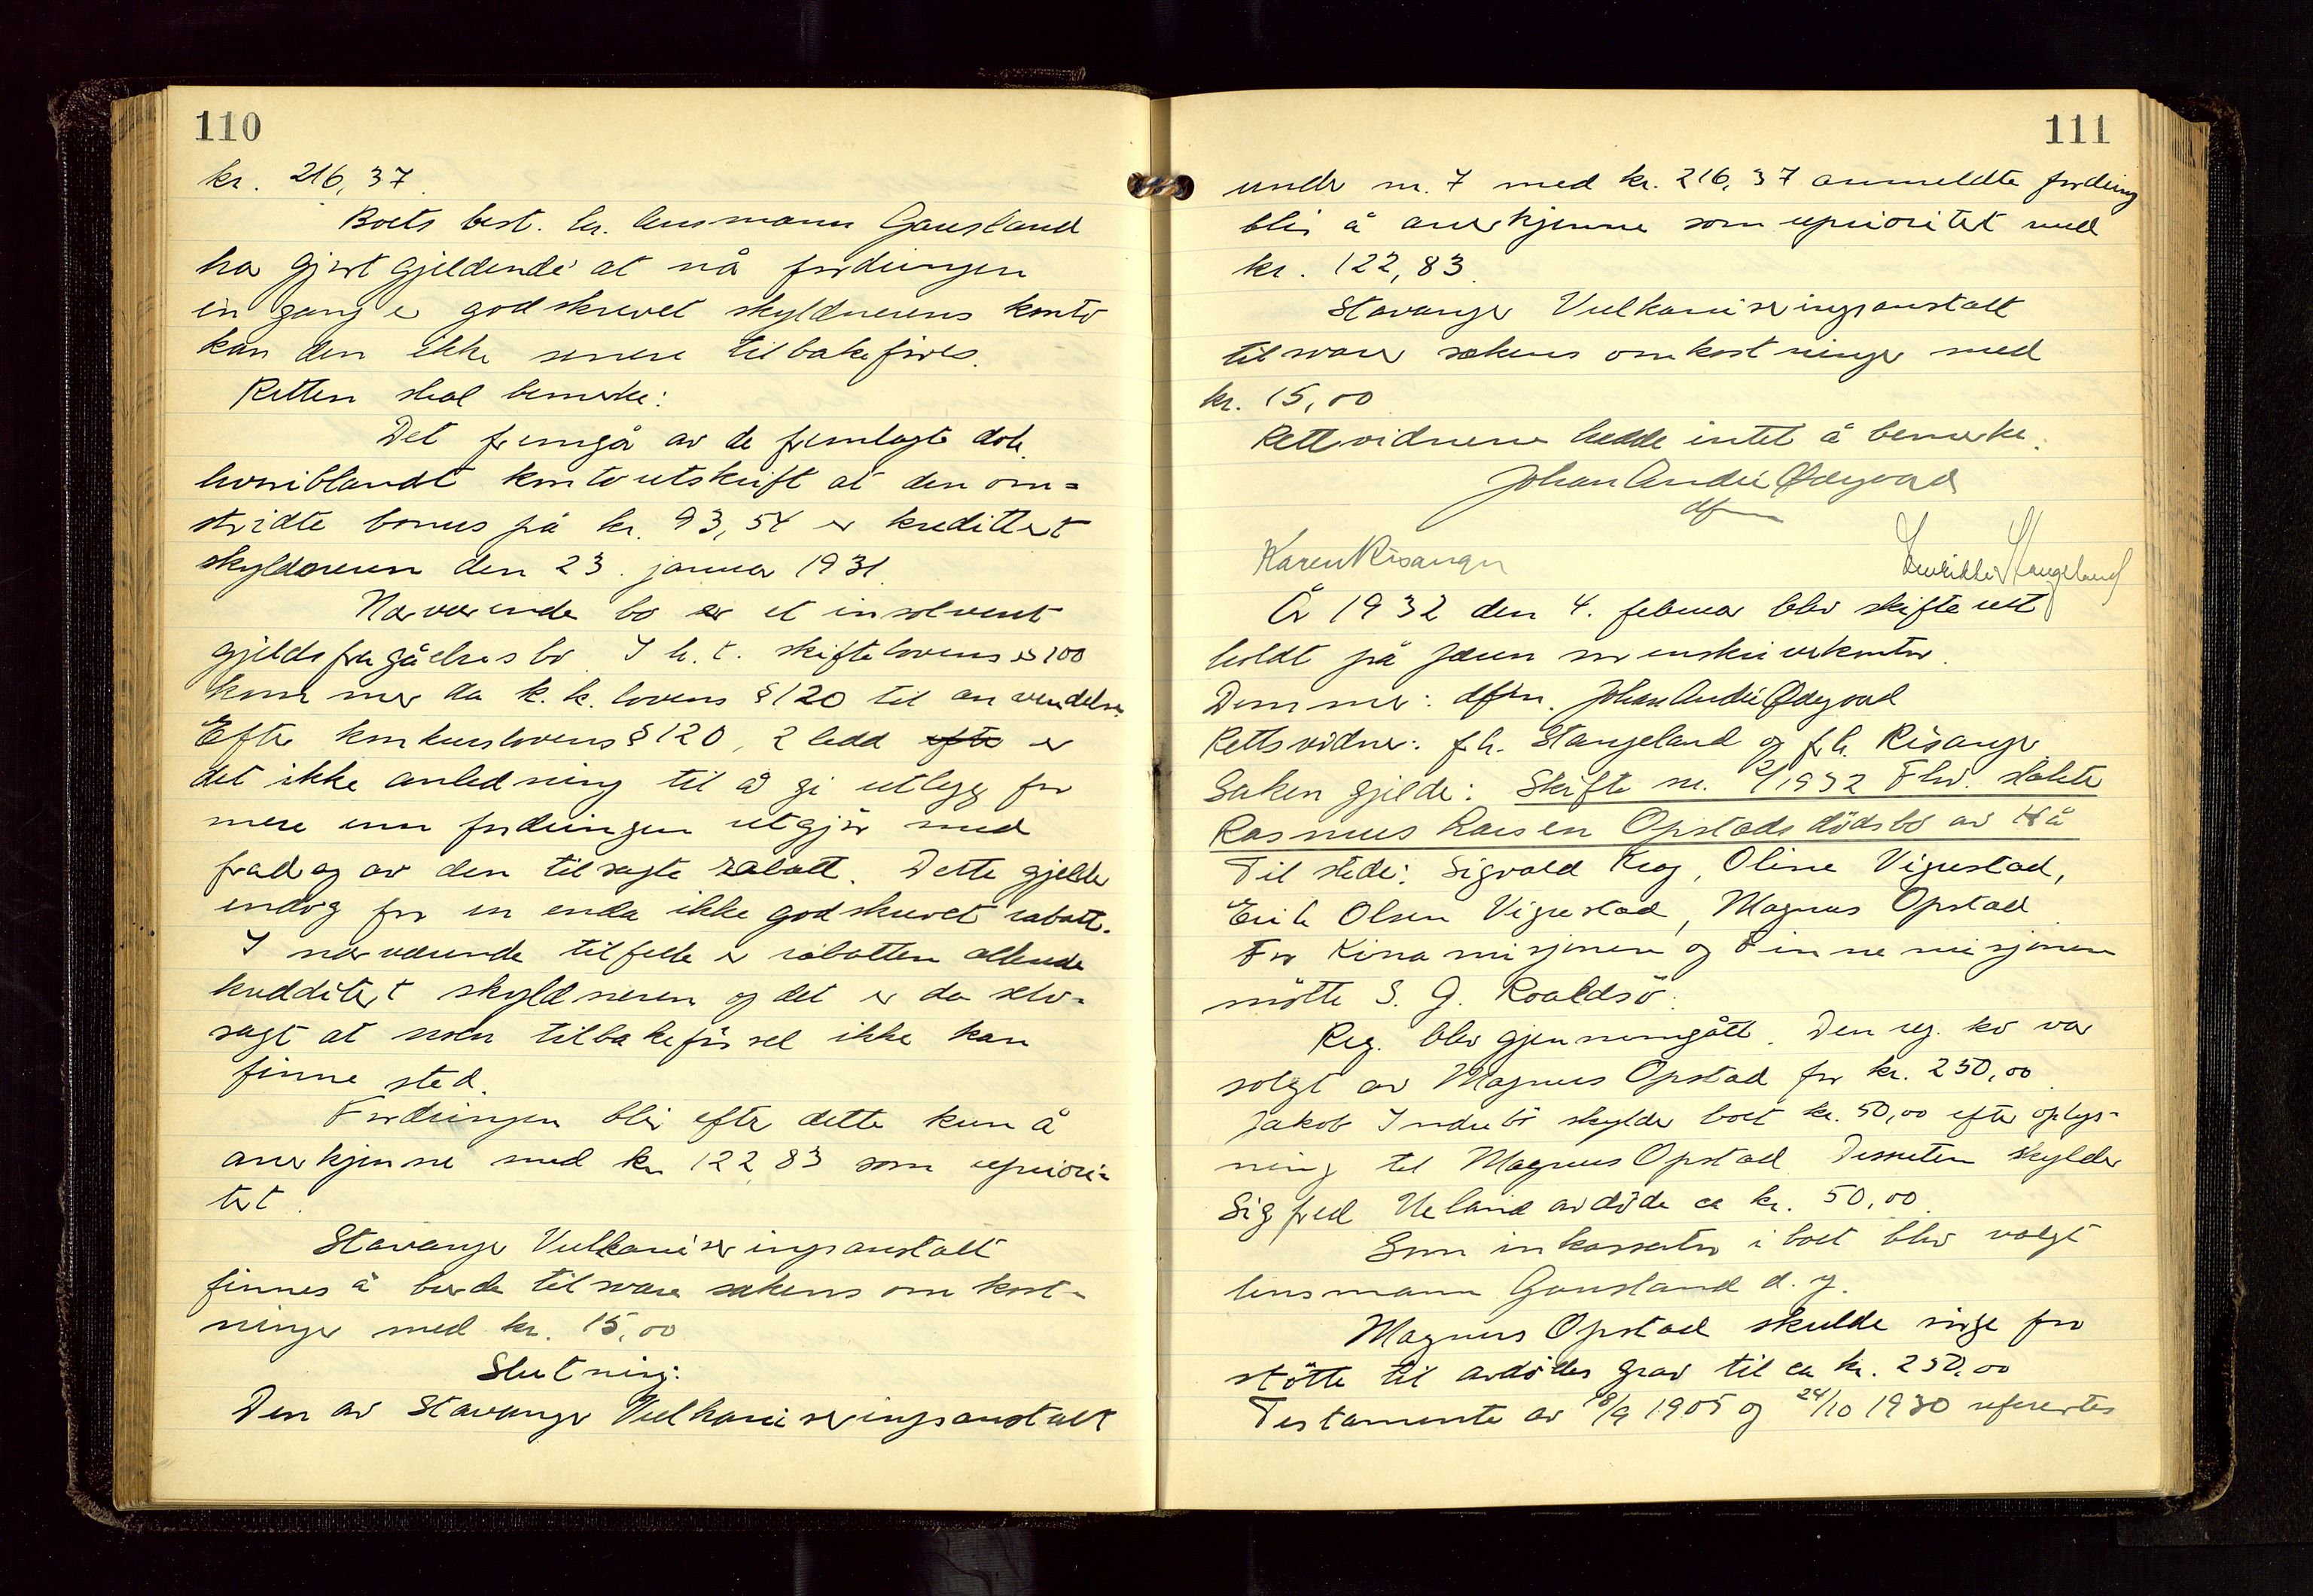 110
kr. 216,37.
Boets best. hr. lensmann Gausland
har gjort gjeldende at nå fordringen
en gang er godskrevet skyldnerens konto
kan den ikke senere tilbakeføres.
Retten skal bemerke:
Det fremgår av de fremlagte dok.
hvoriblandt kontoutskrift at den om=
stridte bonus på kr. 93,54 er kredittert
skyldneren den 23. januar 1931.
Nærværende bo er et insolvent
gjeldsfragåelsesbo. I h.t. skiftelovens § 100
kommer da k.k. lovens § 120 til anvendelse.
Efter konkurslovens § 120, 2 ledd efter er
det ikke anledning til å gi utlegg for
mere enn fordringen utgjør med
fradrag av den tilsagte rabatt. Dette gjelder
endog for en enda ikke godskrevet rabatt.
I nærværende tilfelle er rabatten allerede
kreditert skyldneren og det er da selv-
sagt at noen tilbakeførsel ikke kan
finne sted.
Fordringen blir efter dette kun å
anerkjenne med kr. 122,83 som upriori-
tert.
Stavanger Vulkaniseringsanstalt
finnes å burde tilsvare sakens omkost-
ninger med kr. 15,00
Slutning:
Den av Stavanger Vulkaniseringsanstalt
111
under nr. 7 med kr. 216,37 anmeldte fordring
blir å anerkjenne som uprioritet med
kr. 122,83.
Stavanger Vulkaniseringsanstalt
tilsvarer sakens omkostninger med
kr. 15,00
Rettsvidnene hadde intet å bemerke.
Johan André Ødegaard
dfm
Karen Risanger
Stangeland
År 1932 den 4. februar blev skifterett
holdt på Jæren sorenskriverkontor.
Dommer: dfm. Johan André Ødegaard
Rettsvidner: frk. Stangeland og frk. Risanger
Saken gjelder: Skifte nr. 2/1932 Fhv. slakter
Rasmus Larsen Opstads dødsbo av Hå
Til stede: Sigvald Krog, Oline Vigrestad,
Erik Olsen Vigrestad, Magnus Opstad.
For Kinamisjonen og Finnemisjonen
møtte S. G. Roaldsø.
Reg. blev gjennemgått. Den reg. ko var
solgt av Magnus Opstad for kr. 250,00.
Jakob Indrebø skylder boet kr. 50,00 efter oplys-
ning til Magnus Opstad. Dessuten skylder
Sigfred Ueland avdøde ca kr. 50,00.
Som inkassator i boet blev valgt
lensmann Gausland d.y.
Magnus Opstad skulde sørge for
støtte til avdødes grav til ca kr. 250,00
Testamente av 18/9 1905 og 24/10 1930 refererte